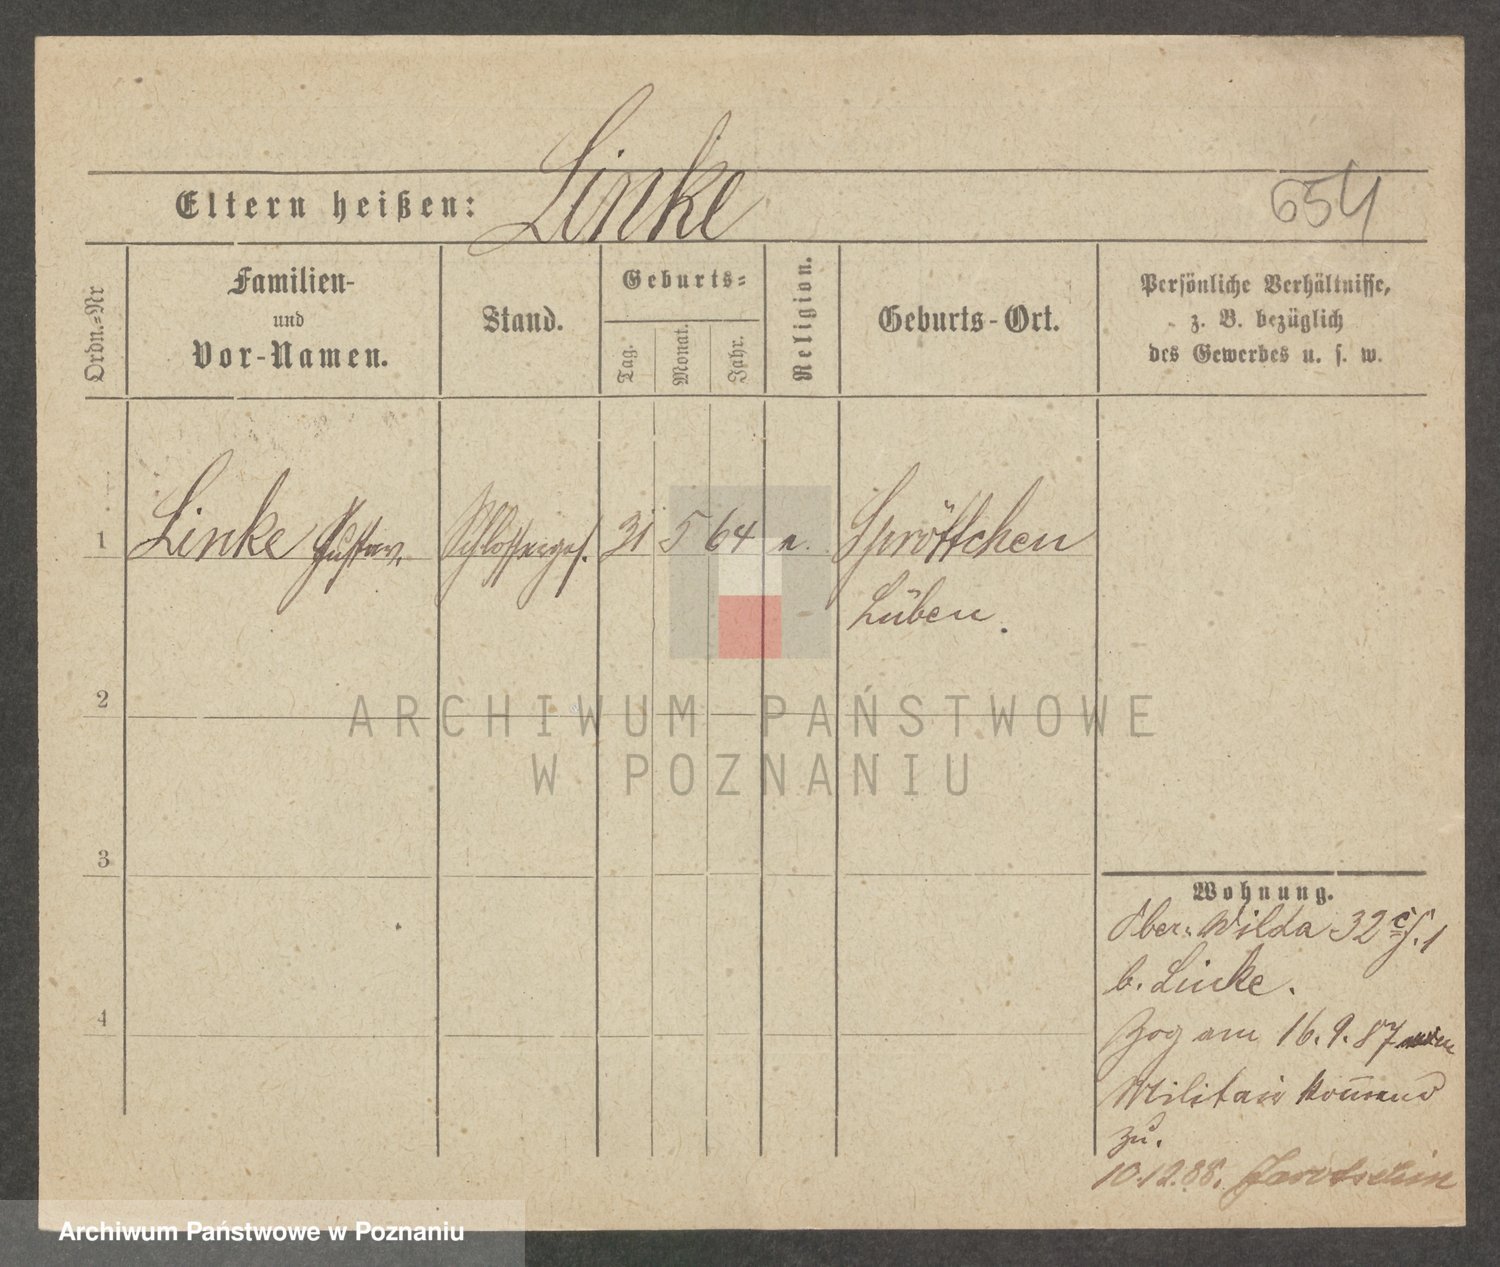 Eltern heißen: Linke
654
Ordn.=Nr
Familien-
und
Vor-Namen.
Stand.
Geburts=
Tag.
Monat.
Jahr.
Religion.
Geburts-Ort.
Persönliche Verhältnisse,
z. B. bezüglich
des Gewerbes u. s. w.
1 Linke Gustav Schlosserges. 31 5 64 Spröttchen
Lüben.
2
ARCHIWUM PAŃSTWOWE
W POZNANIU
3
4
Wohnung.
Ober-Wilda 32
b. Linke.
Zog am 16. 9. 87
Militair
zu.
10.12.88. Jarotschin
Archiwum Państwowe w Poznaniu